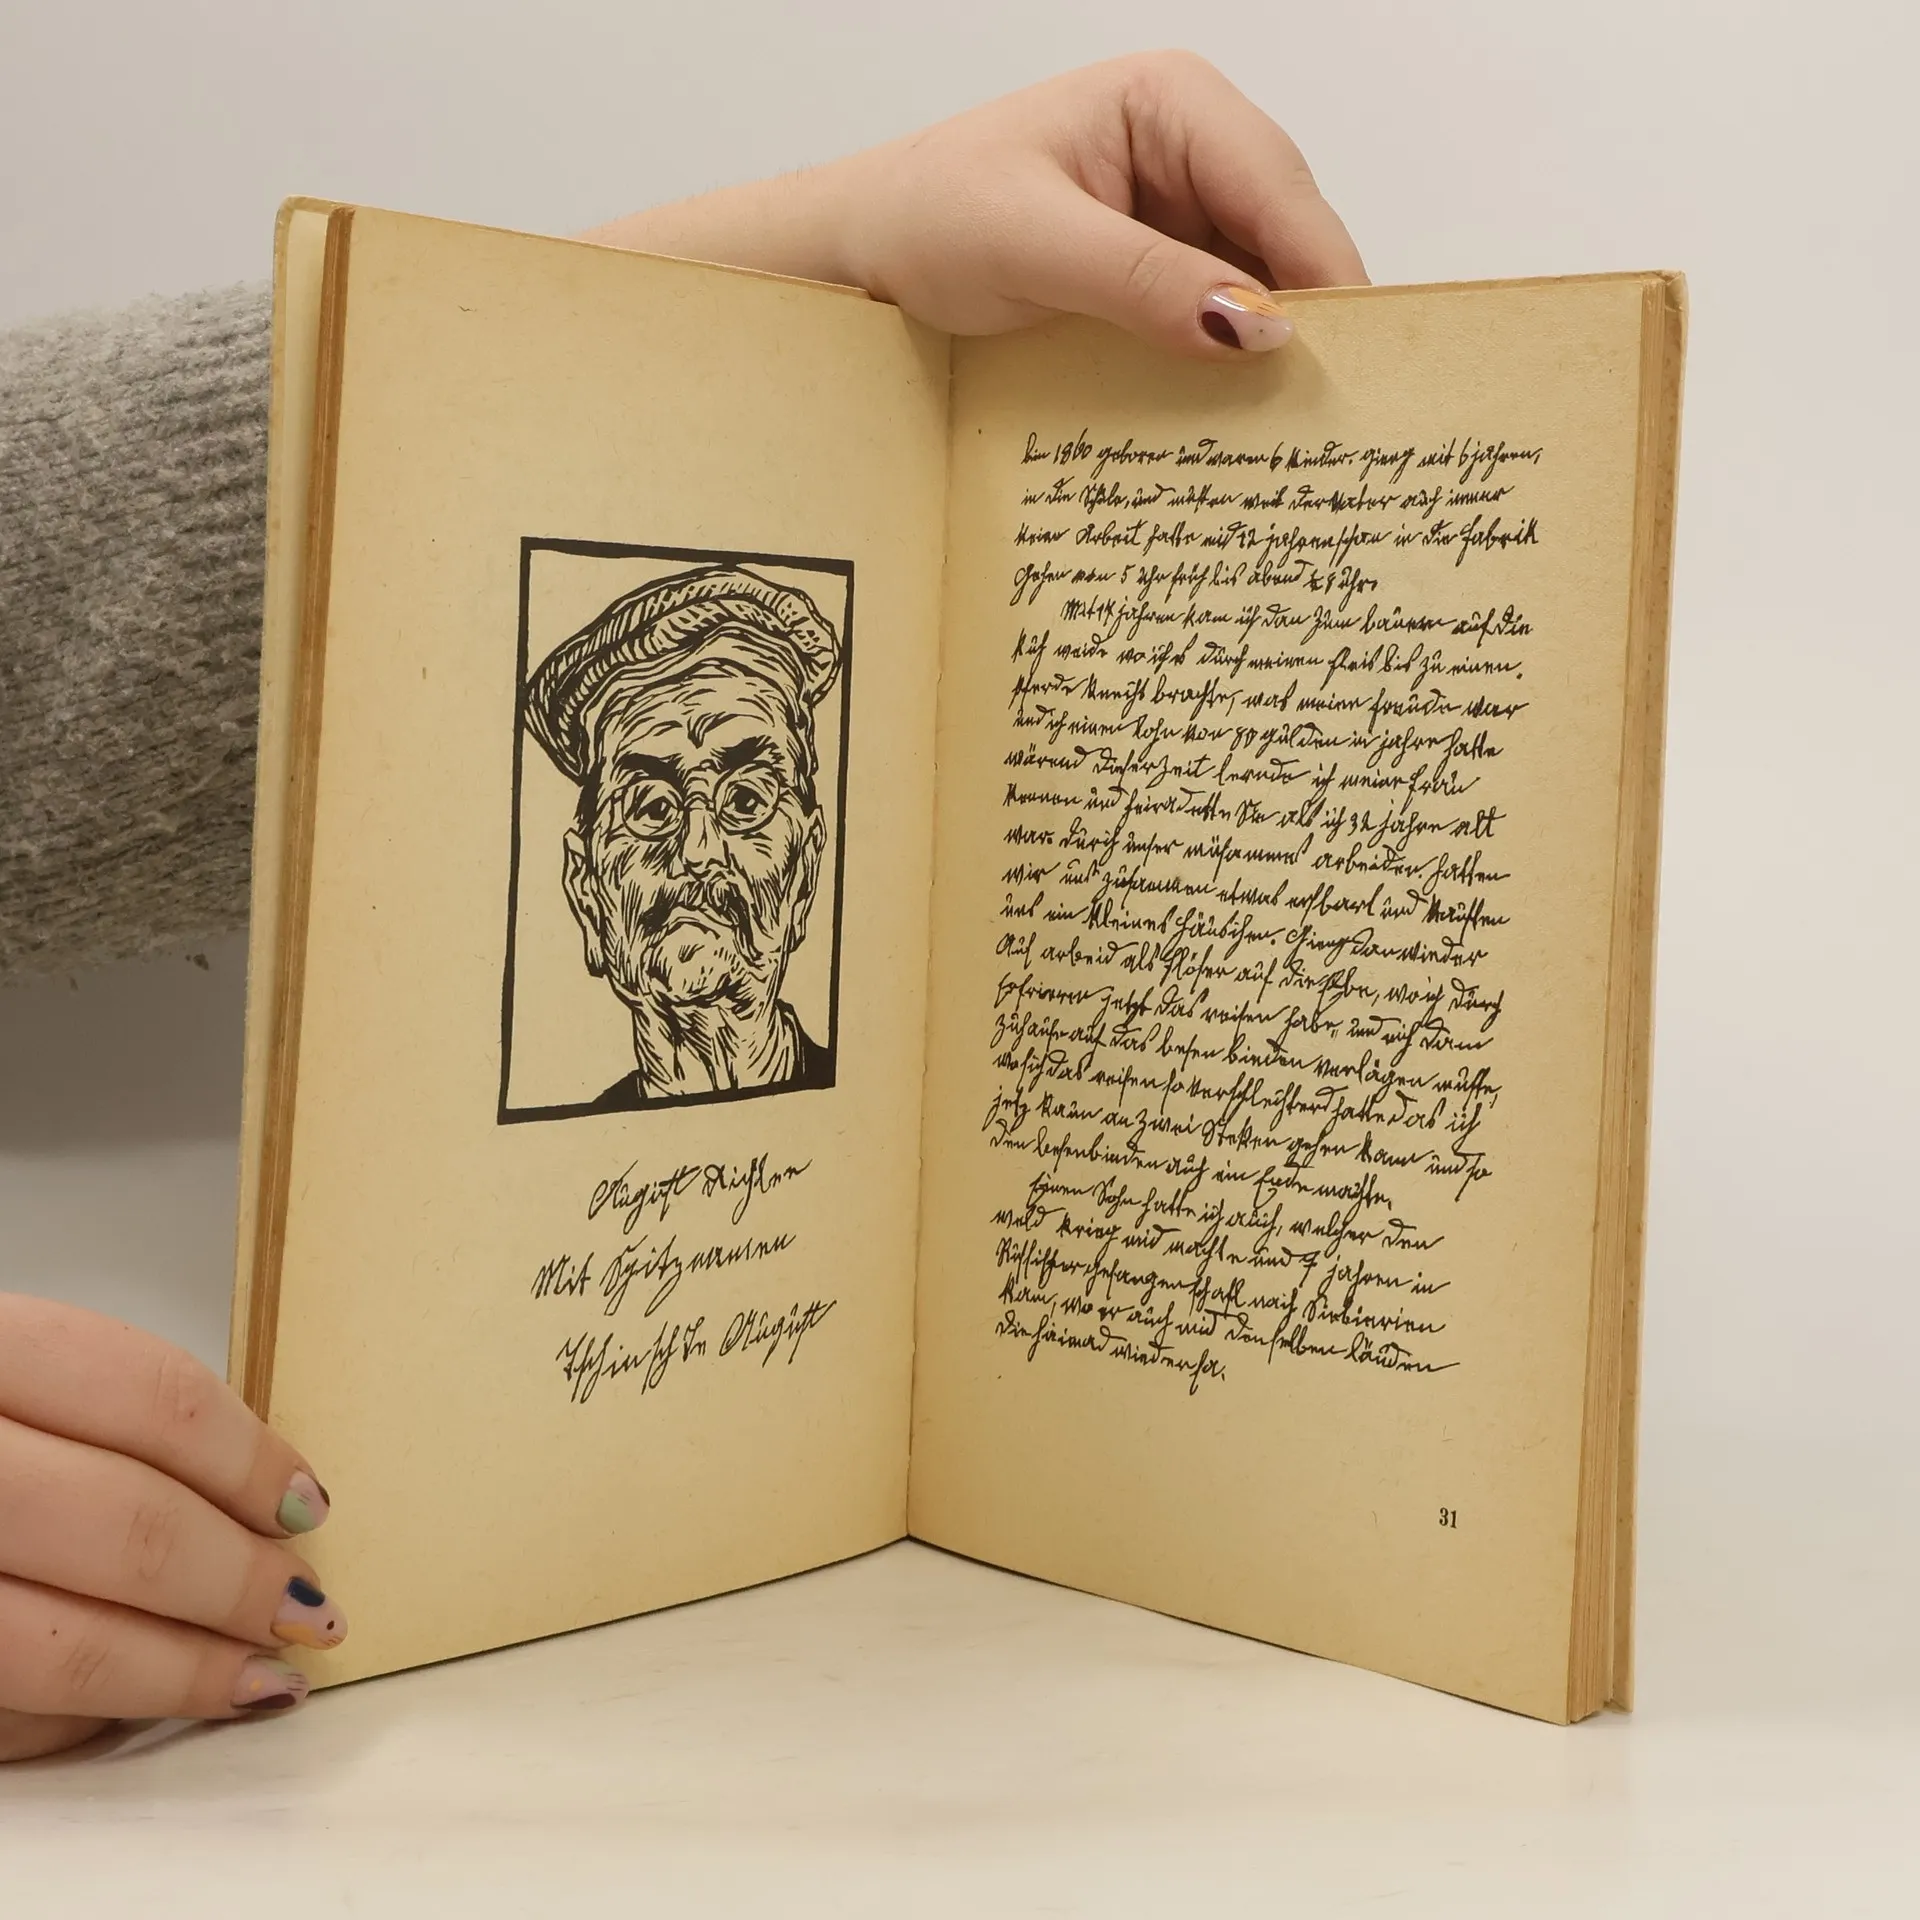 August Richter
Mit Spitznamen
Tschinschde August
Bin 1860 geboren und waren 6 Kinder. gieng mit 6 jahren,
in die Schule, und musten weil der Vater auch immer
keine Arbeit hatte mid 12 jahren schon in die Fabrik
Gehen von 5 Uhr früh bis abend Uhr.
Mit 14 jahren kam ich dan zum bauern auf die
Kuh weide wo ich es durch meinen fleis bis zu einen
Pferde Knecht brachte, was meine freude war
und ich einen Lohn von 80 gulden in jahre hatte
wärend dieser Zeit lernde ich meine frau
kennen und heiradette Sie als ich 32 jahre alt
war. durch unser müsammes arbeiden. hatten
wir uns zusammen etwas erspart und kauften
uns ein kleines häuschen. Gieng dan wieder
Auf arbeid als flöser auf die Elbe, wo ich durch
erfrieren jetzt das reisen habe, und mich dann
zuhause auf das besen binden verlägen muste,
wo sich das reisen so verschlechterd hatte das ich
jetz kaum an zwei Steken gehen kann und so
den besenbinden auch ein Ende machte.
Einen Sohn hatte ich auch, welcher den
weld krieg mid machte und 7 jahren in
Russischer gefangenschaft nach Siebierien
kam, wo er auch mid denselben läuden
die heimad wieder sa.
31